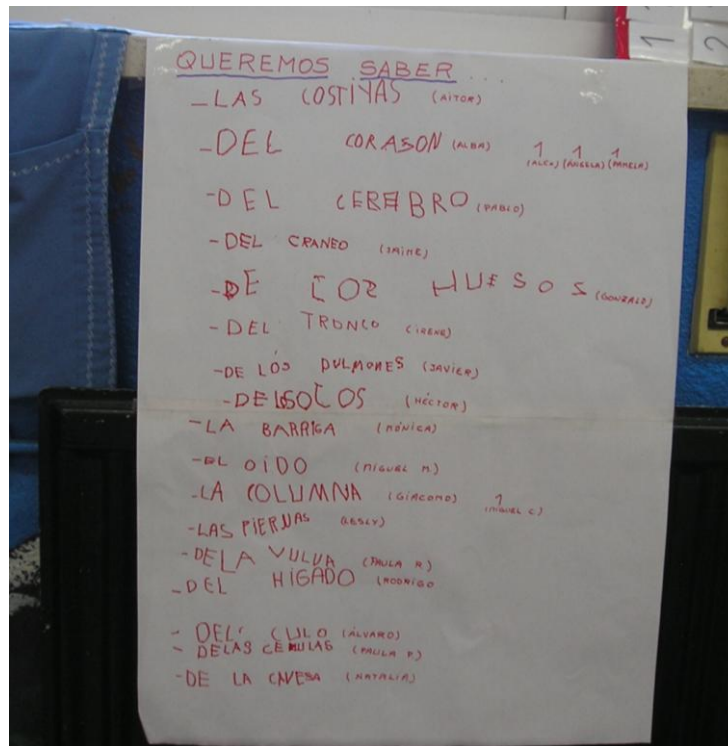 QUEREMOS SABER ...
- LAS COSTIYAS (AITOR)
- DEL CORASON (ALBA) 1 1 1
(ALEX) (ÁNGELA) (PAMELA)
- DEL CEREBRO (PABLO)
- DEL CRANEO (JAIME)
- DE LOS HUESOS (GONZALO)
- DEL TRONCO (IRENE)
- DE LOS PULMONES (JAVIER)
(HÉCTOR)
- LA BARRIGA (MÓNICA)
- DEL OÍDO (MIGUEL M.)
- LA COLUMNA (GIACOMO) 1
(MIGUEL C)
- LAS PIERNAS (LESLY)
- DE LA VULVA (PAULA R)
- DEL HIGADO (RODRIGO
- DEL CULO (ÁLVARO)
- DELAS CELULAS (PAULA F.)
- DE LA CAVESA (NATALIA)
1
2